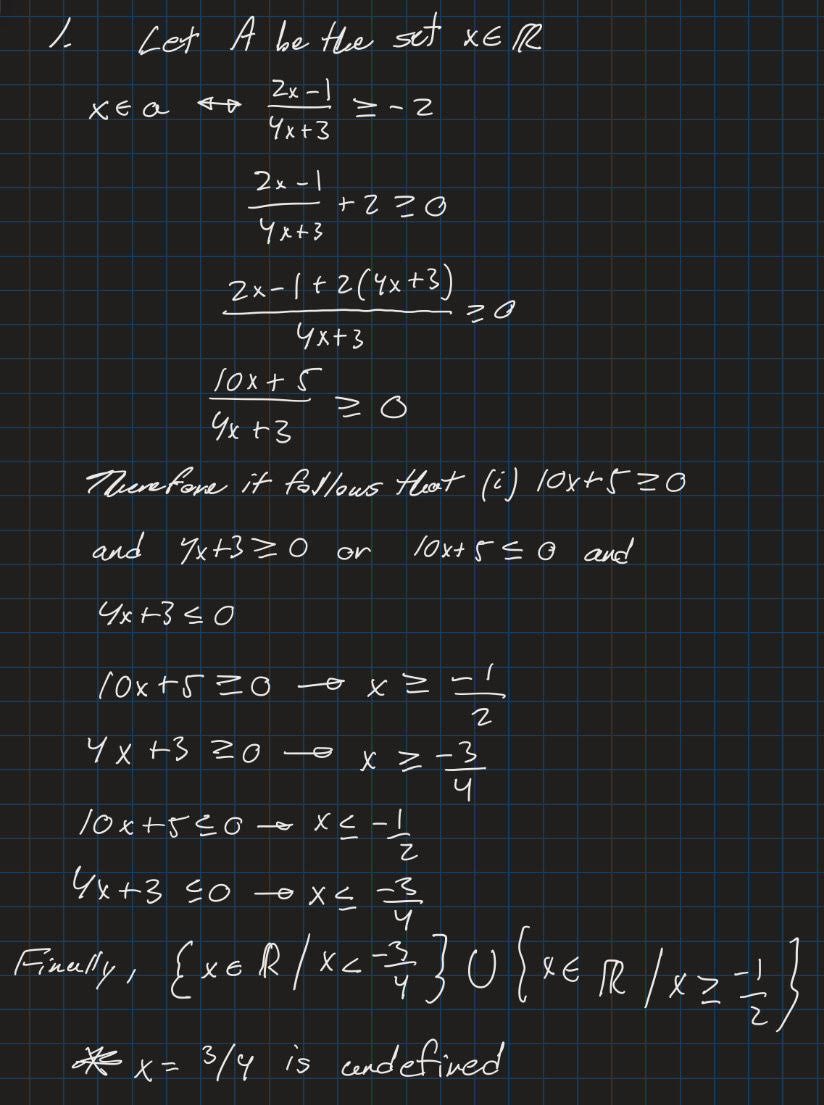 1. Let A be the set x ∈ ℝ
x ∈ a ↔ (2x-1)/(4x+3) ≥ -2
(2x-1)/(4x+3) + 2 ≥ 0
(2x-1+2(4x+3))/(4x+3) ≥ 0
(10x+5)/(4x+3) ≥ 0
Therefore it follows that (i) 10x+5 ≥ 0
and 4x+3 ≥ 0 or 10x+5 ≤ 0 and
4x+3 ≤ 0
10x+5 ≥ 0 → x ≥ -1/2
4x+3 ≥ 0 → x ≥ -3/4
10x+5 ≤ 0 → x ≤ -1/2
4x+3 ≤ 0 → x ≤ -3/4
Finally, {x ∈ ℝ / x < -3/4} ∪ {x ∈ ℝ / x ≥ -1/2}
* x = 3/4 is undefined